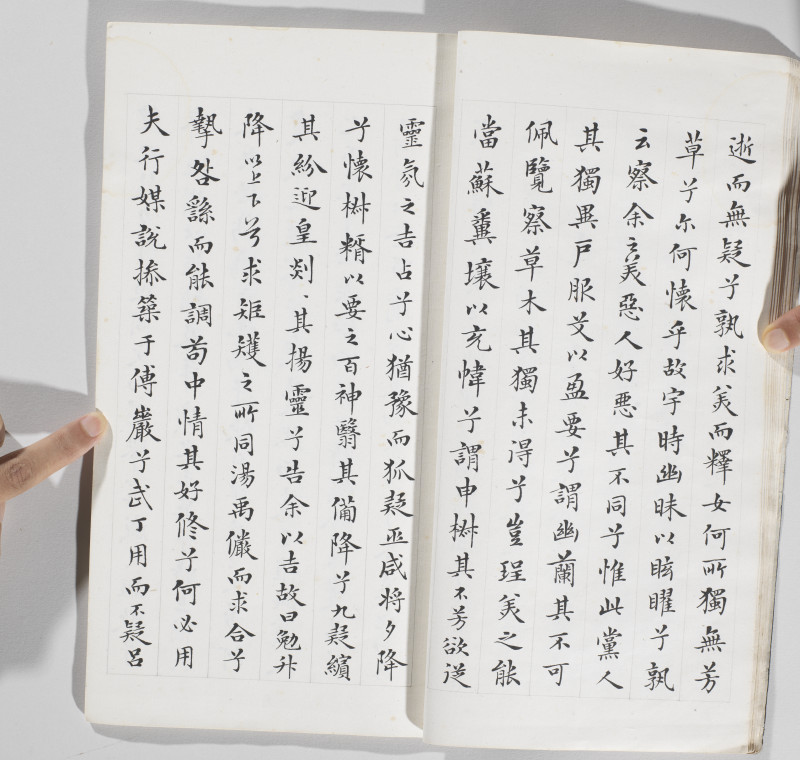 逝而無疑兮孰求美而釋女何所獨無芳
草兮尔何懷乎故宇時幽昧以眩曜兮孰
云察余之美惡人好惡其不同兮惟此黨人
其獨異戶服艾以盈要兮謂幽蘭其不可
佩覽察草木其獨未得兮豈珵美之能
當蘇糞壤以充幃兮謂申椒其不芳欲從
靈氛之吉占兮心猶豫而狐疑巫咸將夕降
兮懷椒糈以要之百神翳其備降兮九疑繽
其紛迎皇剡、其揚靈兮告余以吉故曰勉升
降以上下兮求矩矱之所同湯禹儼而求合兮
摯咎繇而能調苟中情其好修兮何必用
夫行媒說操築于傅巖兮武丁用而不疑呂